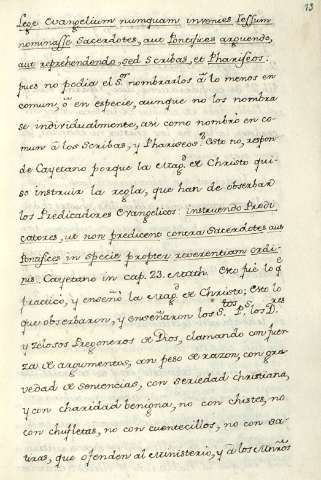 13
Lege Evangelium numquam invenies Jessum
nominasse Sacerdotes, aut Pontifices arguendo,
aut reprehendendo, sed Scribas, et Phariseos:
pues no podia el S.r nombrarlos à lo menos en
comun, ò en especie, aunque no los nombra
se individualmente, asi como nombrò en co-
mun à los Scribas, y Phariseos? Esto no, respon-
de Cayetano porque la Mag.d de Christo qui-
so instruir la regla, que han de obserbar
los Predicadores Evangelicos: instruendo Predi
catores, ut non predicent contra Sacerdotes aut
Pontifices in specie propter reverentiam ordi-
nis. Cayetano in cap. 23. Math. Esto fuè lo q.e
practicò, y enseñò la Mag.d de Christo; Esto lo
que obserbaron, y enseñaron los S.tos P.s, los D.res
y zelosos Pregoneros de Dios, clamando con fuer
za de argumentos, con peso de razon, con gra
vedad de sentencias, con seriedad christiana,
y con charidad benigna, no con chistes, no
con chufletas, no con cuentecillos, no con sa-
tiras, que ofenden al Ministerio, y à los Minños